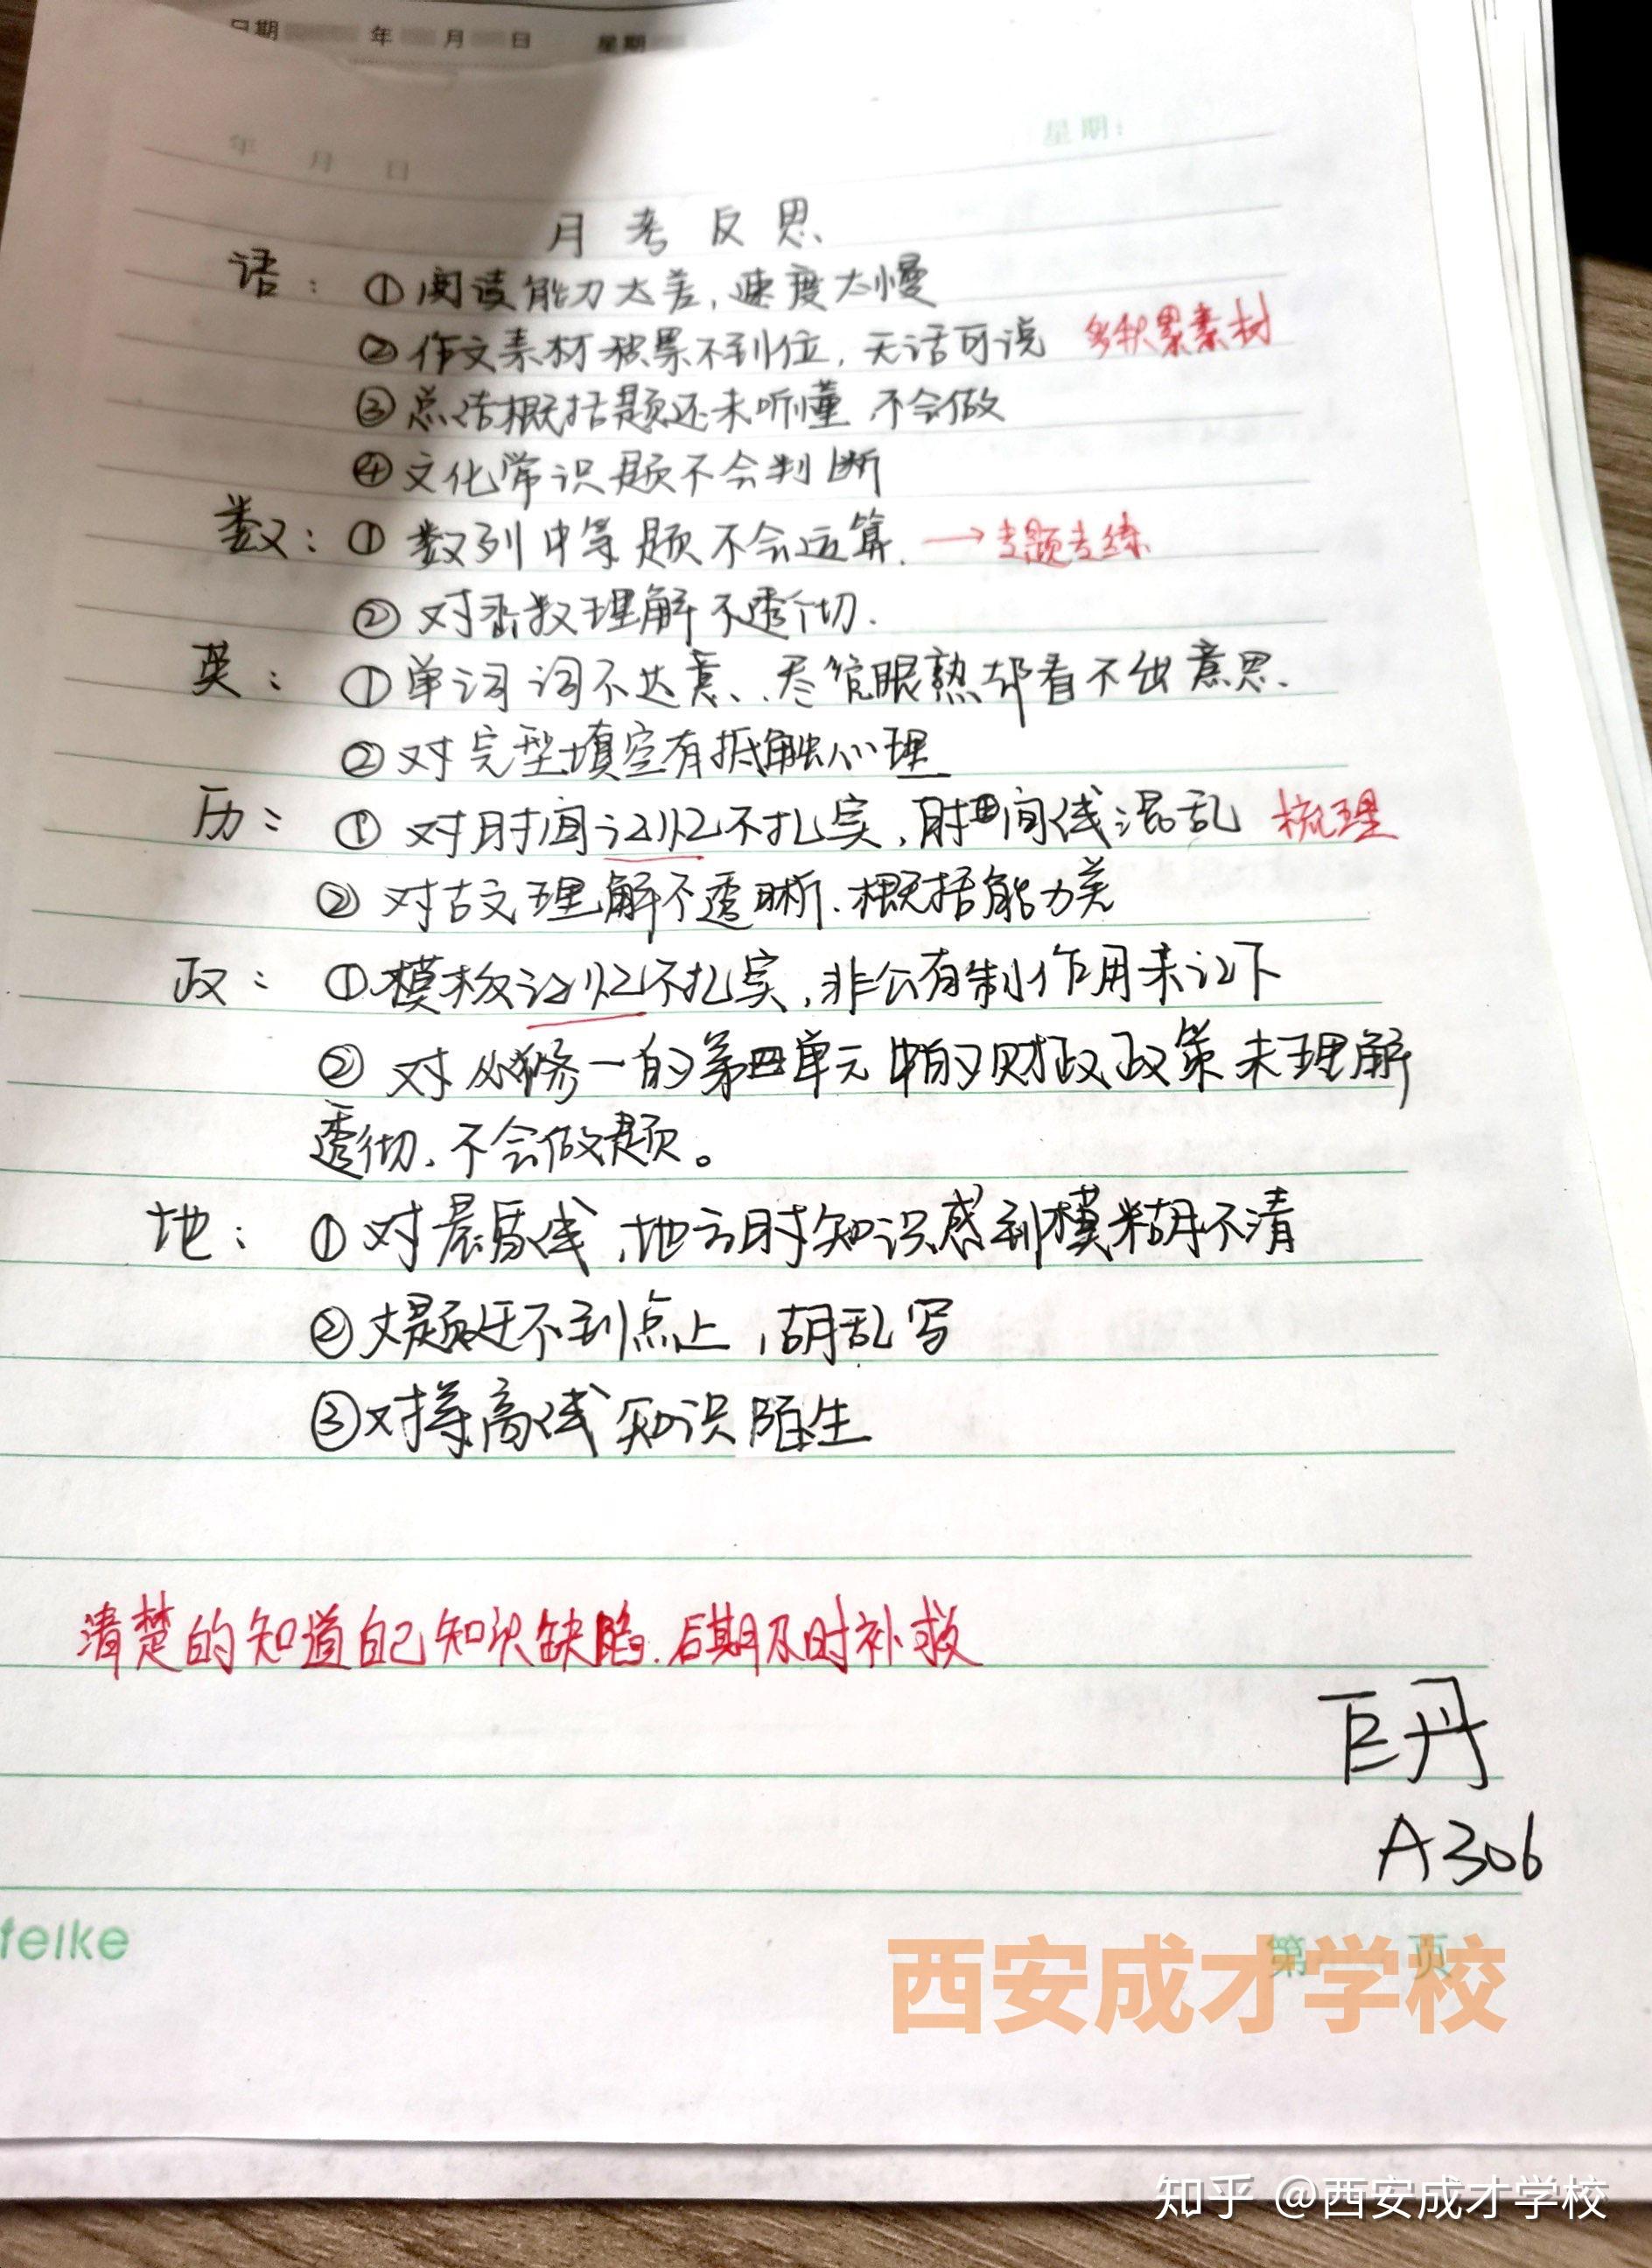 日期 年 月 日 星期
年 月 日 星期：
月考反思
语：①阅读能力太差，速度太慢
②作文素材积累不到位，无话可说 多积累素材
③总结概括题还未听懂 不会做
④文化常识题不会判断
数：①数列中等题不会运算. →专题专练
②对函数理解不透彻.
英：①单词词不达意、尽管眼熟却看不出意思.
②对完型填空有抵触心理
历：①对时间记忆不扎实，时间线混乱 梳理
②对古文理解不透晰.概括能力差
政：①模板记忆不扎实，非公有制作用未记下
②对必修一的第四单元中的财政政策未理解
透彻.不会做题。
地：①对晨昏线，地方时知识感到模糊不清
②大题迁不到点上，胡乱写
③对等高线知识陌生
清楚的知道自己知识缺陷.后期及时补救
巨丹
A306
feike 第 页
西安成才学校
知乎 @西安成才学校